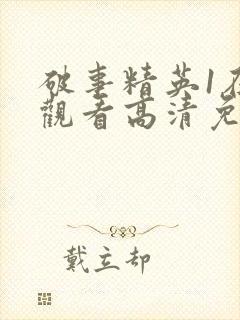 破事精英1在
觀看高清免
戴立却